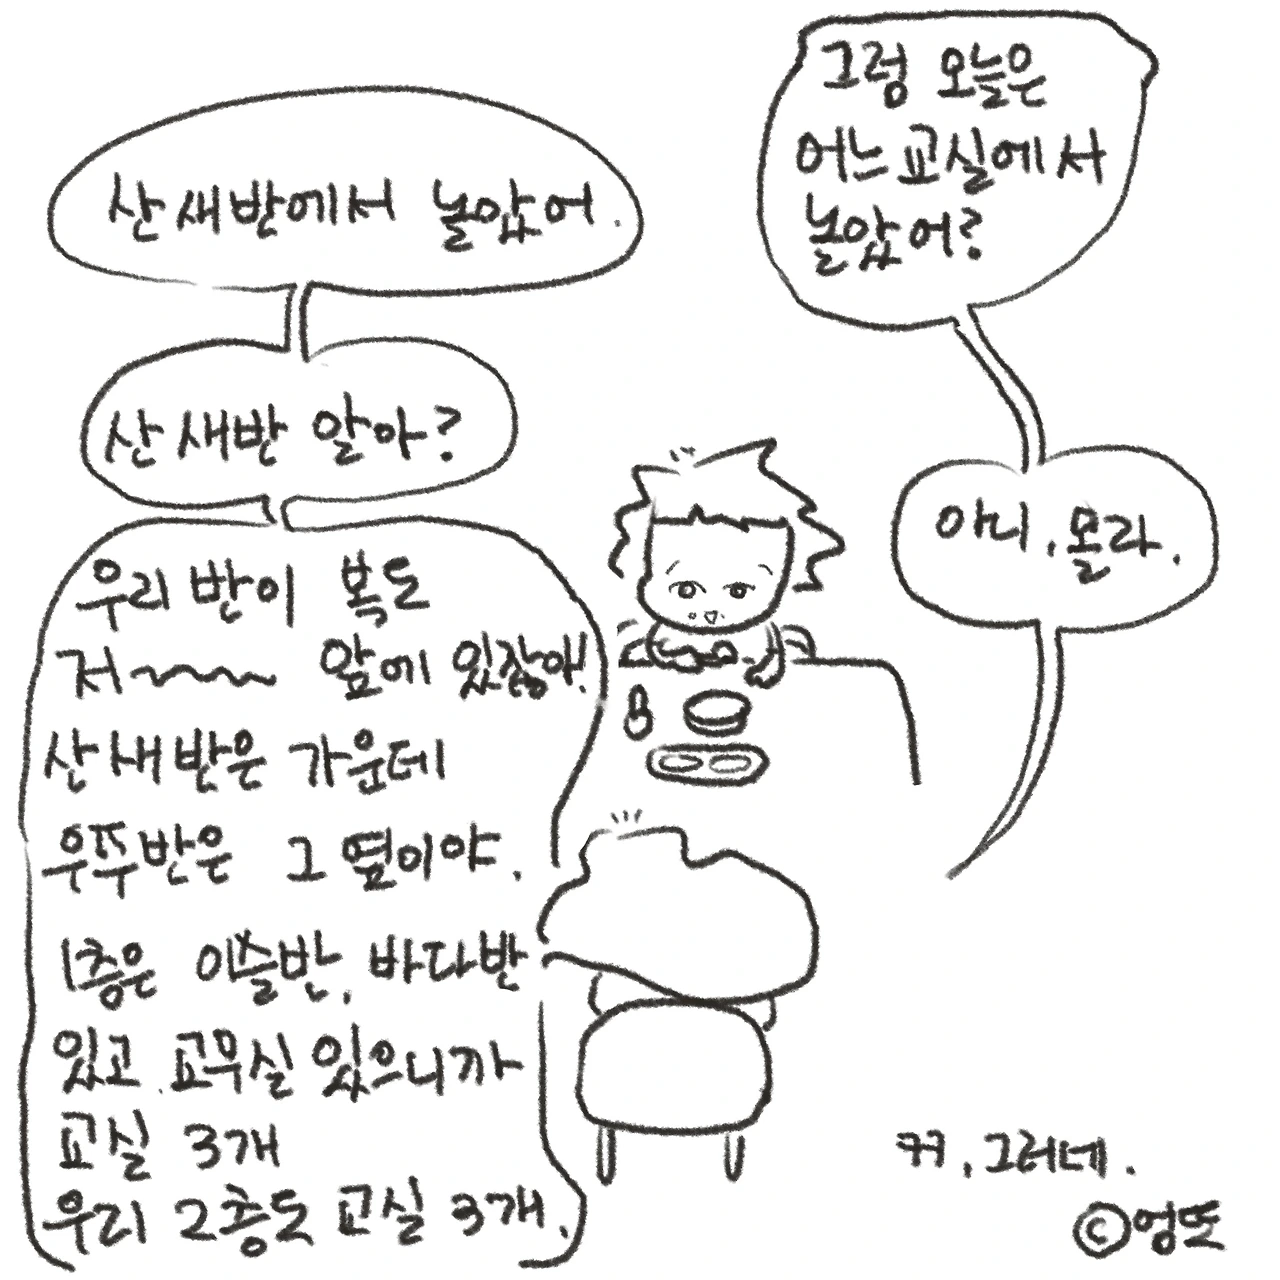 그럼 오늘은
어느 교실에서
놀았어?
산새반에서 놀았어.
산새반 알아?
아니. 몰라.
우리 반이 복도
저~~~~ 앞에 있잖아!
산새반은 가운데
우쭈반은 그 옆이야.
1층은 이슬반, 바다반
있고. 교무실 있으니까
교실 3개
우리 2층도 교실 3개.
ㅋㅋ, 그러네.
©엉또